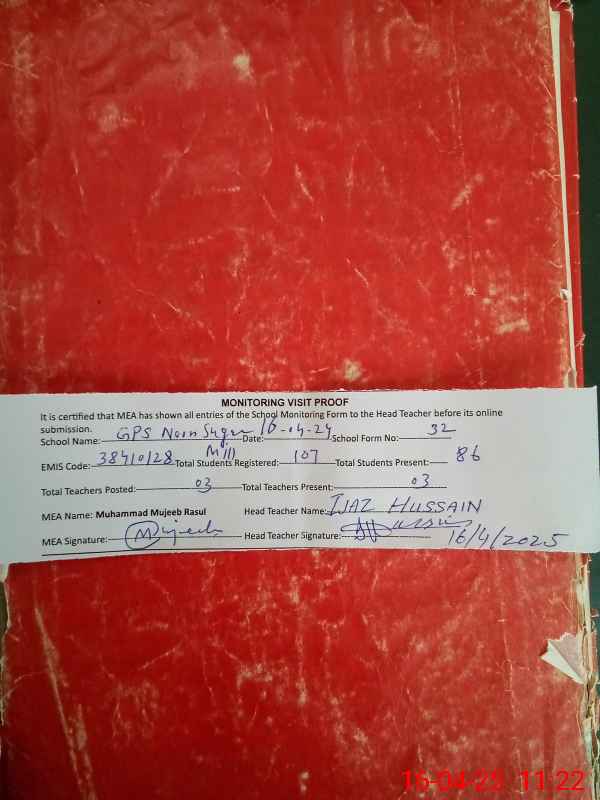 MONITORING VISIT PROOF
It is certified that MEA has shown all entries of the School Monitoring Form to the Head Teacher before its online
submission.
School Name: GPS Noon Sugar Mill Date: 16-04-24 School Form No: 32
EMIS Code: 38410128 Total Students Registered: 107 Total Students Present: 86
Total Teachers Posted: 03 Total Teachers Present: 03
MEA Name: Muhammad Mujeeb Rasul Head Teacher Name: IJAZ HUSSAIN
MEA Signature: Mujeeb Head Teacher Signature: 16/4/2025
16-04-25 11:22